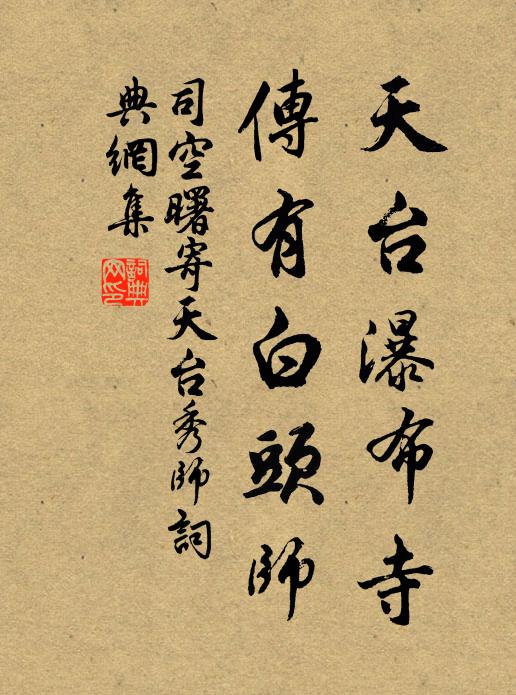 天台瀑布寺
傳有白頭師
司空曙寄天台秀師詞
典網集
詞典
网印